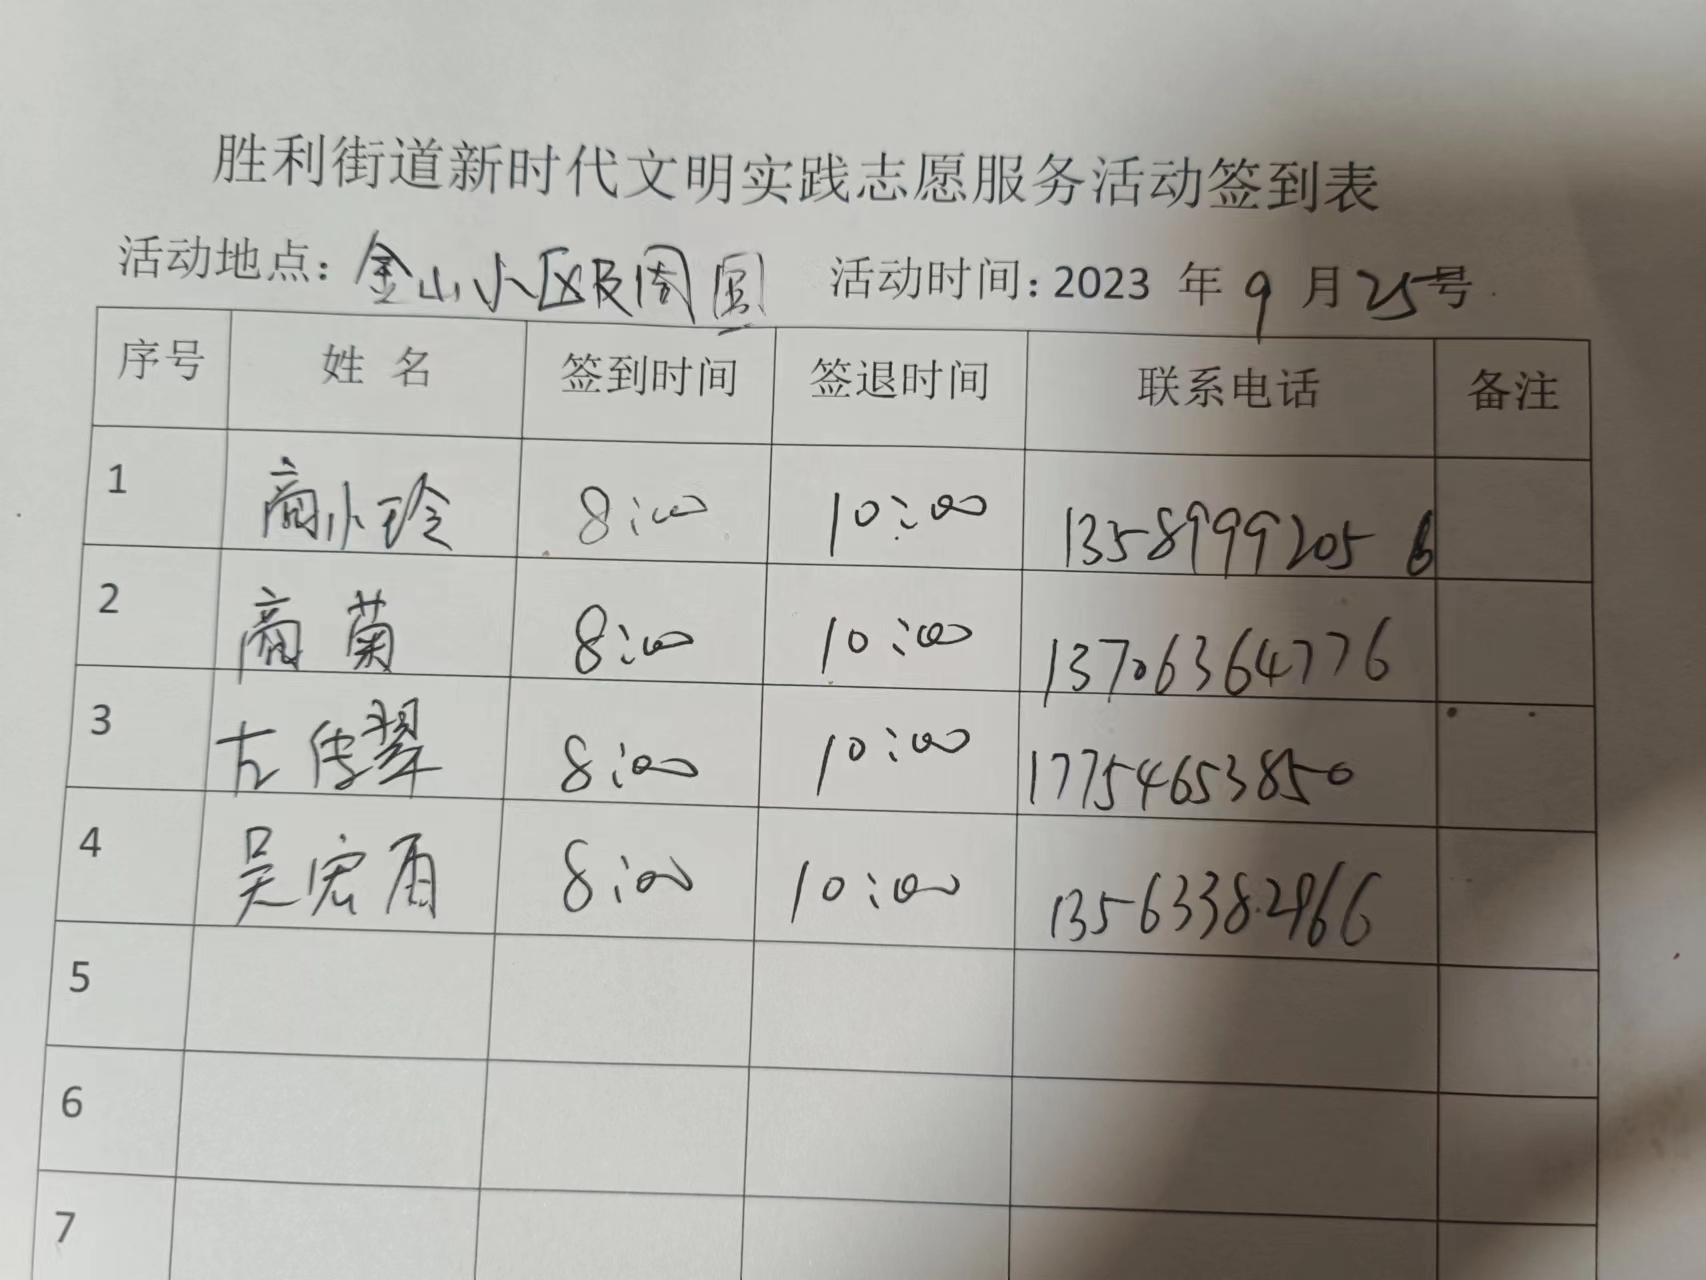 胜利街道新时代文明实践志愿服务活动签到表
活动地点: 金山小区及周围 活动时间: 2023 年 9 月 25号
序号 姓 名 签到时间 签退时间 联系电话 备注
1 商小玲 8:00 10:00 13589992056
2 商菊 8:00 10:00 13706364776
3 左传翠 8:00 10:00 17754653850
4 吴宏雨 8:00 10:00 13563382966
5
6
7